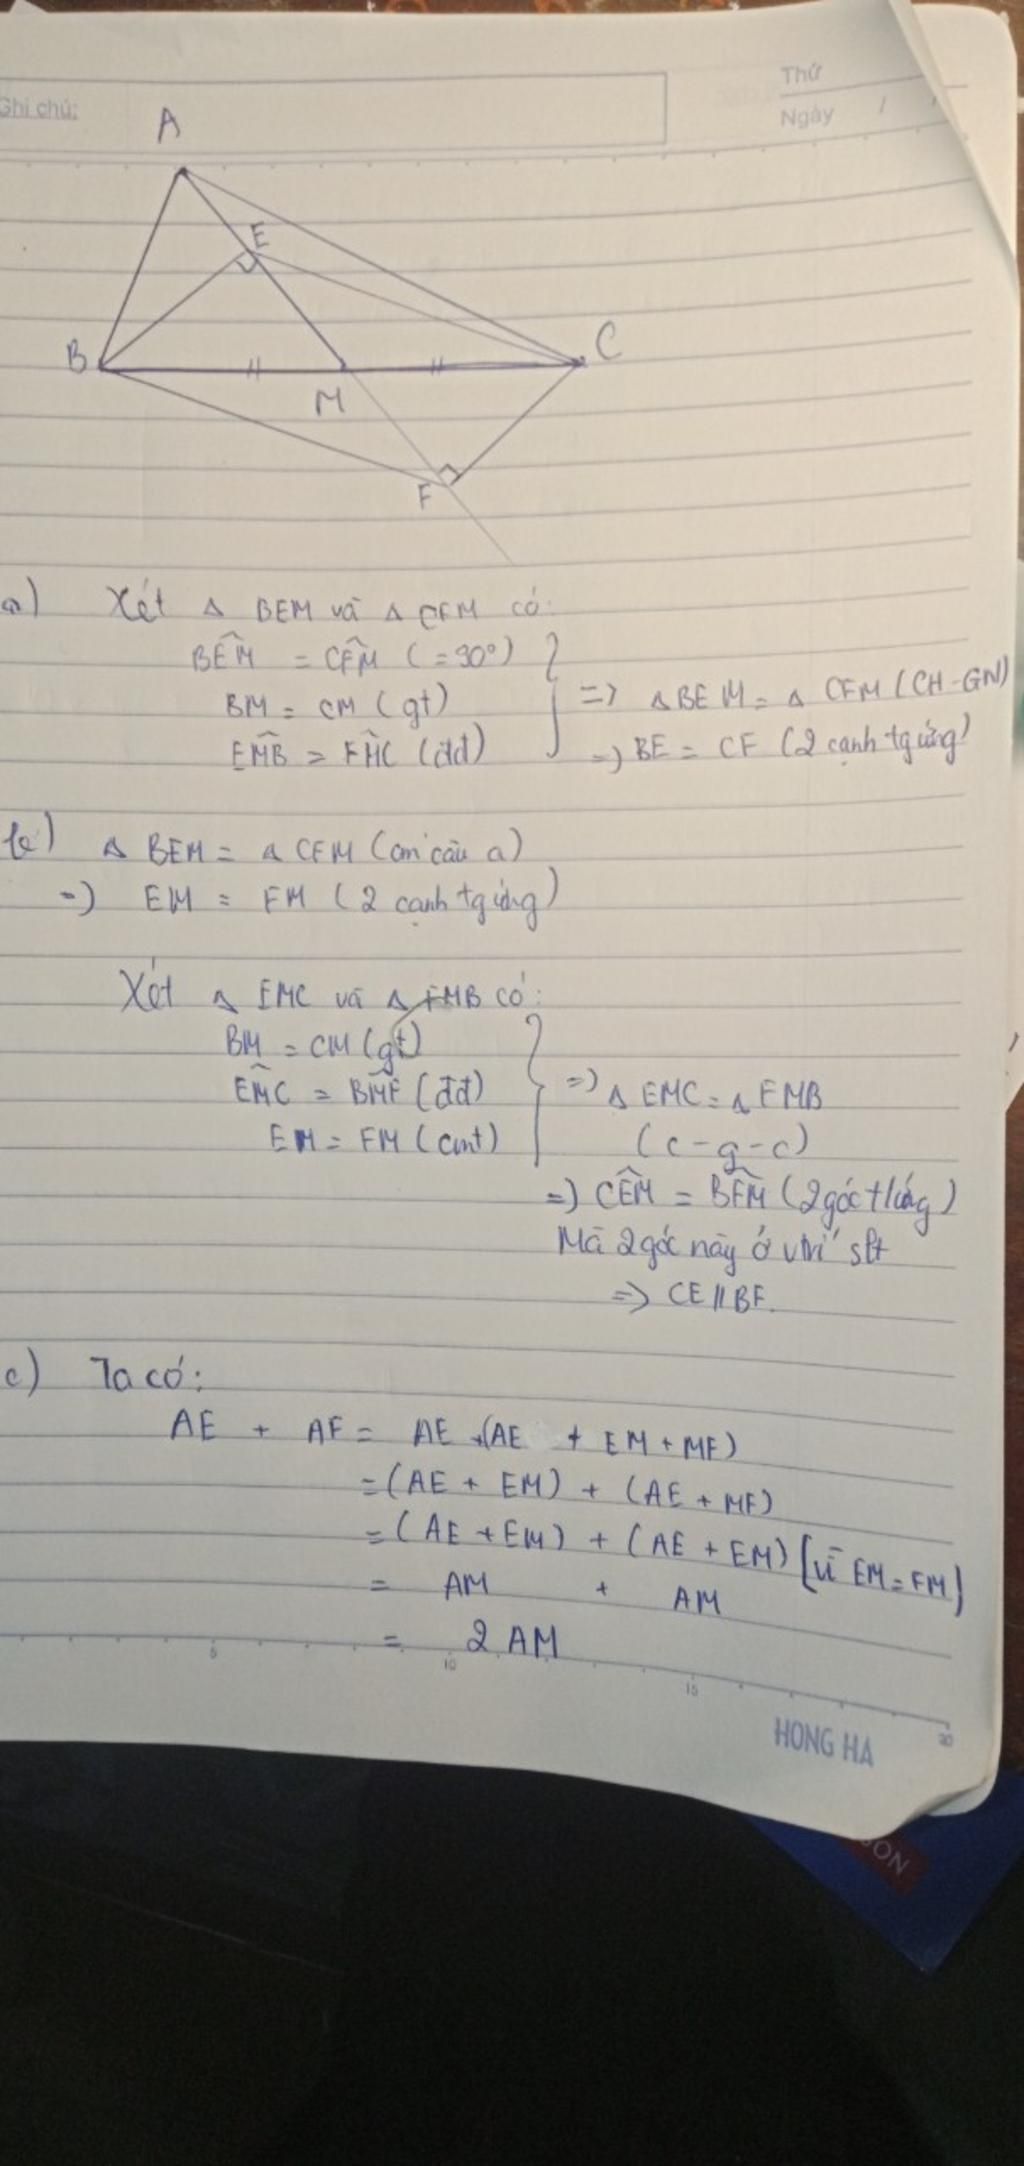 Ghi chú:
Thứ
Ngày / /
A
E
B
C
M
F
a) Xét Δ BEM và Δ CFM có:
BÊM = CF̂M (= 90°)
BM = CM (gt)
EM̂B = FM̂C (đđ)
=> Δ BEM = Δ CFM (CH-GN)
=> BE = CF (2 cạnh tg ứng)
b) Δ BEM = Δ CFM (cm câu a)
=> EM = FM (2 cạnh tg ứng)
Xét Δ EMC và Δ FMB có:
BM = CM (gt)
EM̂C = BM̂F (đđ)
EM = FM (cmt)
=> Δ EMC = Δ FMB
(c-g-c)
=> CÊM = BF̂M (2 góc t ứng)
Mà 2 góc này ở vtrí slt
=> CE // BF.
c) Ta có:
AE + AF = AE + (AE + EM + MF)
= (AE + EM) + (AE + MF)
= (AE + EM) + (AE + EM) [vì EM = FM]
= AM + AM
= 2 AM
5 10 15 20
HONG HA